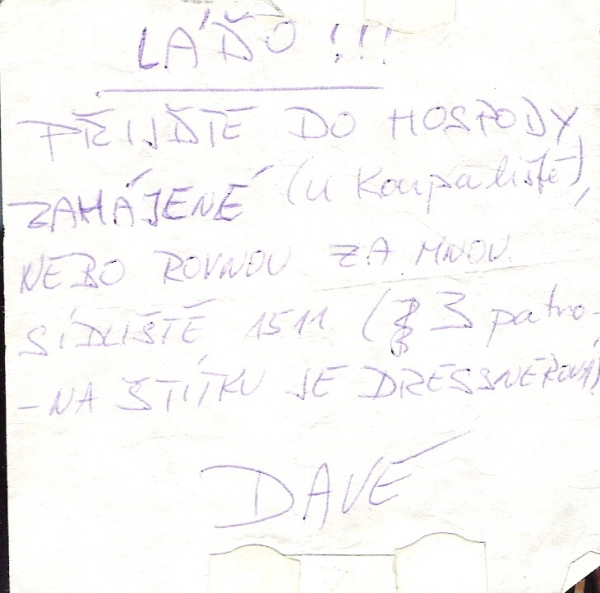 LÁĎO !!!
PŘIJĎTE DO HOSPODY
ZAHÁJENÉ (u koupaliště),
NEBO ROVNOU ZA MNOU
SÍDLIŠTĚ 1511 (3 patro-
-NA ŠTÍTKU JE DRESSNEROVÁ)
DAVE